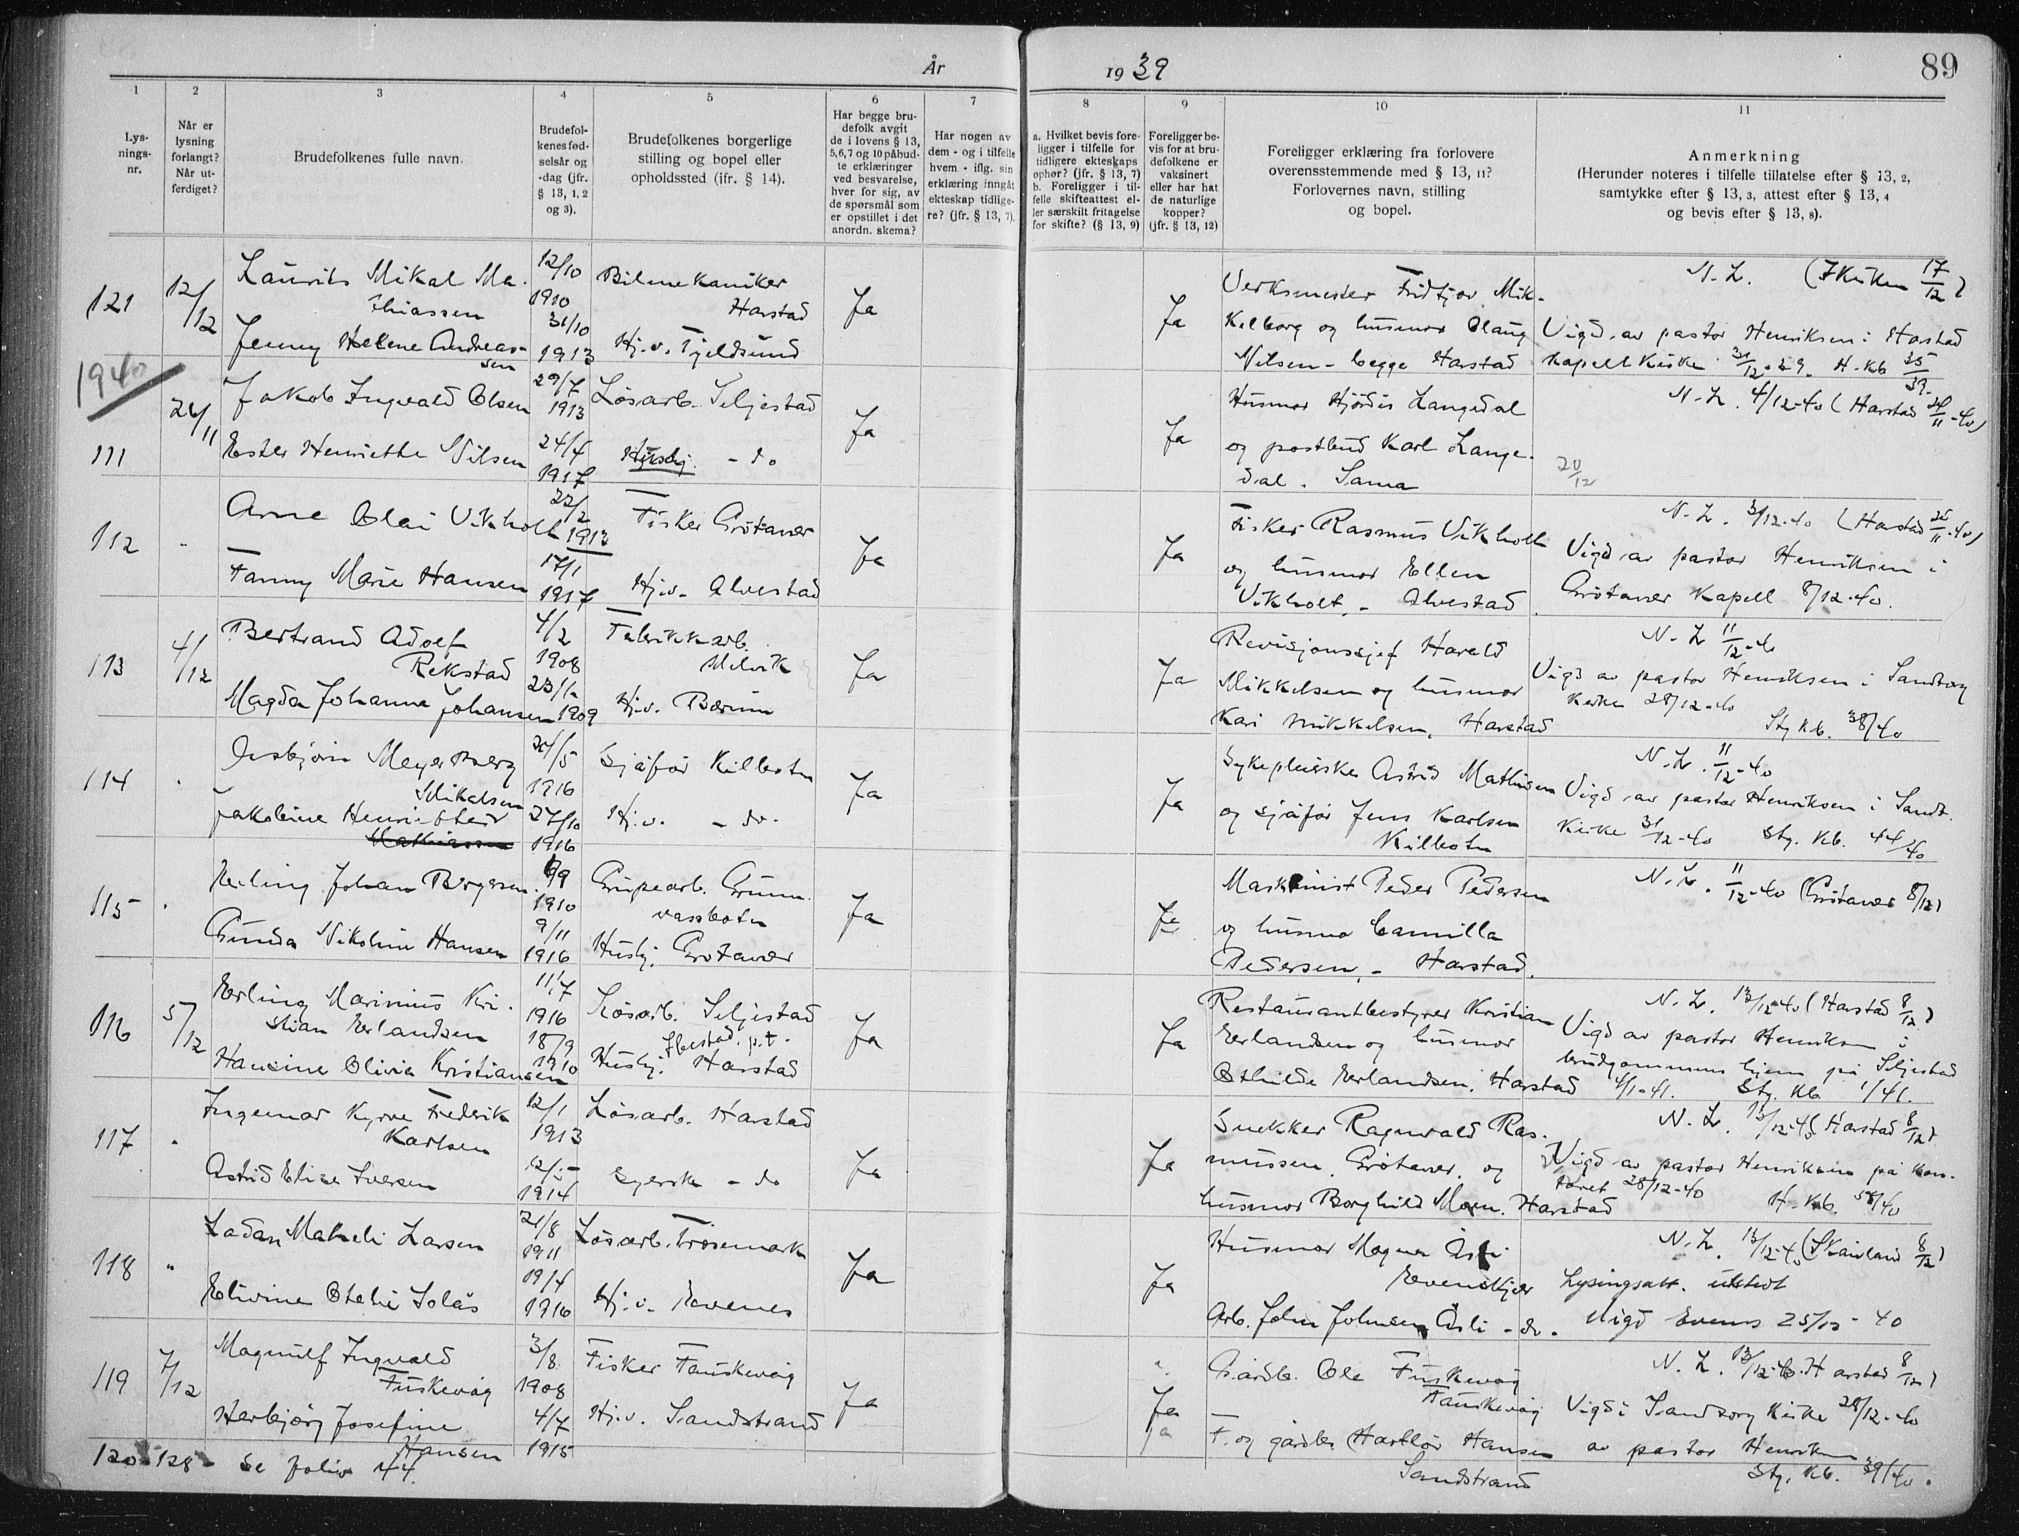 År
19 39
89
1
2
3
4
5
6
7
8
9
10
11
Lys-
nings-
nr.
Når er
lysning
forlangt?
Når ut-
ferdiget?
Brudefolkenes fulle navn.
Brudefol-
kenes fød-
selsår og
-dag (jfr.
§ 13, 1, 2
og 3).
Brudefolkenes borgerlige
stilling og bopel eller
opholdssted (jfr. § 14).
Har begge bru-
defolk avgit
de i lovens § 13,
5,6,7 og 10 påbud-
te erklæringer
ved besvarelse,
hver for sig, av
de spørsmål som
er opstillet i det
anordn. skema?
Har nogen av
dem - og i tilfelle
hvem - iflg. sin
erklæring inngått
ekteskap tidlige-
re? (jfr. § 13, 7).
a. Hvilket bevis fore-
ligger i tilfelle for
tidligere ekteskaps
ophør? (jfr. § 13, 7)
b. Foreligger i til-
felle skifteattest el-
ler særskilt fritagelse
for skifte? (§ 13, 9)
Foreligger be-
vis for at bru-
defolkene er
vaksinert
eller har hat
de naturlige
kopper?
(jfr. § 13, 12)
Foreligger erklæring fra forlovere
overensstemmende med § 13, 11?
Forlovernes navn, stilling
og bopel.
Anmerkning
(Herunder noteres i tilfelle tillatelse efter § 13, 2,
samtykke efter § 13, 3, attest efter § 13, 4
og bevis efter § 13, 8).
121
12/12
Laurits Mikal Ma-
thiassen
12/10
1910
Bilmekaniker
Harstad
Ja
Jenny Helene Andreas-
sen
31/10
1913
Hj.v. Tjeldsund
Ja
Verksmester Fridtjov Mik-
kelborg og husmor Olaug
Nilsen - begge Harstad
N. L. 17/12
Vigd av pastor Henriksen i Harstad
kapell kirke 31/12-39. H. kb 35/39
1940
111
26/11
Jakob Ingvald Olsen
29/7
1913
Løsarb. Seljestad
Ja
Ester Henriette Nilsen
24/4
1917
Husbg. - do
Ja
Husmor Hjördis Langedal
og postbud Karl Lange-
dal. Sama
N. L. 4/12-40 (Harstad 26/11-40)
20/12
112
"
Arne Olai Vikholt
22/2
1913
Fisker Grøtavær
Ja
Fanny Marie Hansen
17/1
1917
Hj.v. Alvestad
Ja
Fisker Rasmus Vikholt
og husmor Ellen
Vikholt. - Alvestad
N. L. 3/12-40 (Harstad 26/11-40)
Vigd av pastor Henriksen i
Grøtavær Kapell 8/12-40.
113
4/12
Bertrand Adolf
Rekstad
4/2
1908
Fabrikkarb.
Ja
Magda Johanne Johansen
1909
Hj.v. Bærum
Ja
Revisjonssjef Harald
Mikkelsen og husmor
Kari Mikkelsen. Harstad
N. L 11/12-40
Vigd av pastor Henriksen i Sandtorg
kirke 28/12-40
Sty. kb. 38/40
114
"
Asbjørn Meyer Berg
Mikalsen
1916
Sjåfør Kilbotn
Ja
27/10
1916
Hj.v. - do.
Ja
Sykepleierske Astrid Mathisen
og sjåfør Jens Karlsen
Kilbotn
N. L. 11/12-40
Vigd av pastor Henriksen i Sandt.
kirke 31/12-40 Sty. Kb. 44/40
115
"
Erling Johan Børgesen
1910
Grubearb. Grunn-
vassbotn
Ja
Gunda Nikoline Hansen
9/11
1916
Husbg. Grøtavær
Ja
Maskinist Peder Pedersen
og husmor Camilla
Pedersen. - Harstad.
N. L. 11/12-40 (Grøtavær 8/12)
116
5/12
Erling Marinius Kri-
stian Erlandsen
11/7
1916
Løsarb. Seljestad
Ibestad p.t.
Ja
Hansine Olivia Kristiansen
18/9
1910
Husbg. Harstad
Ja
Restaurantbestyrer Kristian
Erlandsen og husmor
Othilde Erlandsen. Harstad
N. L. 13/12-40 (Harstad 8/12)
Vigd av pastor Henriksen i
brudgommens hjem på Seljestad
4/1-41. Sty. Kb. 1/41.
117
"
Ingemar Kyrre Fredrik
Karlsen
12/1
1913
Løsarb. Harstad
Ja
Astrid Elise Iversen
1914
Syersk - do
Ja
Snekker Ragnvald Ras-
mussen. Grøtavær. og
husmor Borghild Moen. Harstad
N. L. 13/12-40 (Harstad 8/12)
Vigd av pastor Henriksen på kon-
toret 28/12-40 H. Kb. 58/40
118
"
Larsen
21/8
1911
Løsarb. Trøsemark
Ja
Elivine Otelie Solås
19/4
1916
Hj.v. Evenes
Ja
Husmor Magna Åsli
Evenskjær
Arb. John Johnsen Åsli - do.
N. L. 13/12-40 (Skånland 8/12)
Lysingsatt. utstedt
Vigd Evenes 25/12-40
119
7/12
Magnulf Ingvald
Fuskevåg
3/8
1908
Fisker Fauskevåg
Ja
Herbjørg Josefine
Hansen
4/7
1915
Hj.v. Sandstrand
Ja
Ja
Gårdb. Ole Fuskevåg
Fauskevåg
F. og gårdbr. Hartlør Hansen
Sandstrand
N. L. 13/12-40. Harstad 8/12)
Vigd i Sandtorg Kirke 28/12-40
av pastor Henriksen
Sty. Kb. 39/40.
120-128 - se folio 44.